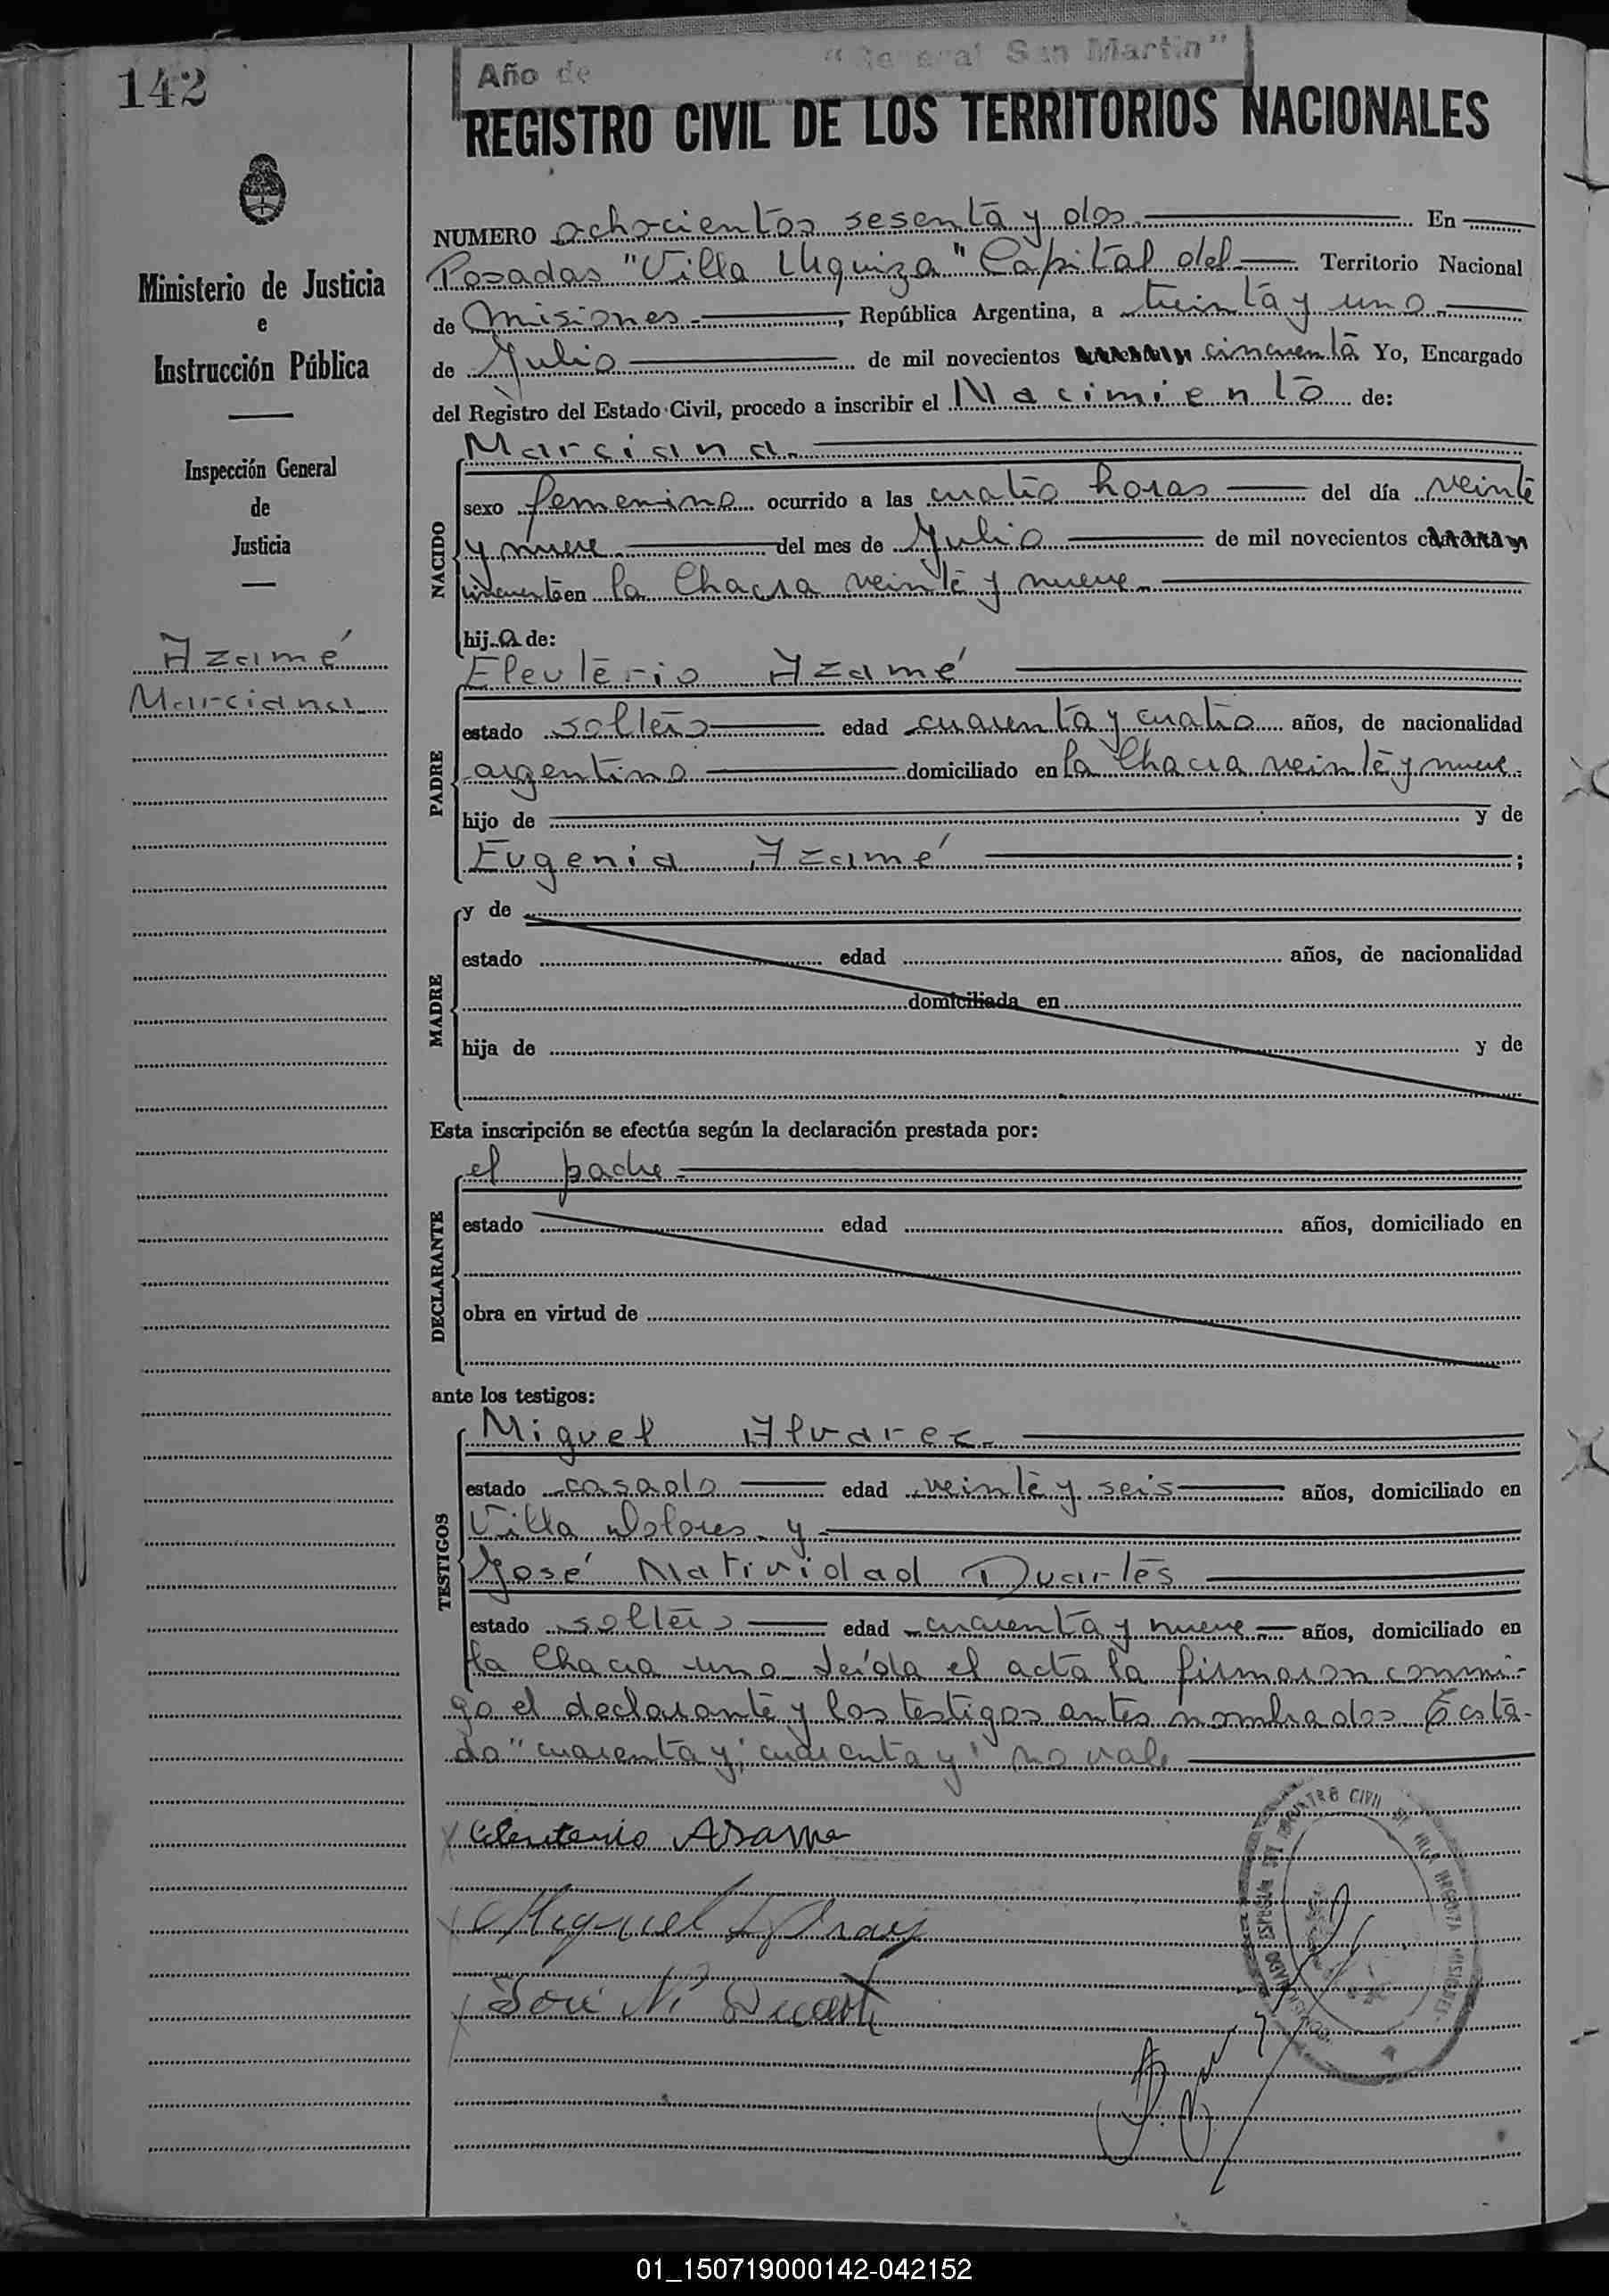 142
Año de "General San Martín"
REGISTRO CIVIL DE LOS TERRITORIOS NACIONALES
Ministerio de Justicia
e
Instrucción Pública
Inspección General
de
Justicia
Azamé
Marciana
NUMERO ochocientos sesenta y dos. En
Posadas "Villa Urquiza" Capital del Territorio Nacional
de Misiones, República Argentina, a treinta y uno
de Julio de mil novecientos cincuenta Yo, Encargado
del Registro del Estado Civil, procedo a inscribir el Nacimiento de:
NACIDO
Marciana.
sexo femenino ocurrido a las cuatro horas del día veinte
y nueve del mes de Julio de mil novecientos cuarenta y
cincuenta en la Chacra veinte y nueve.
hija de:
PADRE
Eleuterio Azamé
estado soltero edad cuarenta y cuatro años, de nacionalidad
argentino domiciliado en la Chacra veinte y nueve.
hijo de y de
Eugenia Azamé ;
MADRE
y de
estado edad años, de nacionalidad
domiciliada en
hija de y de
Esta inscripción se efectúa según la declaración prestada por:
DECLARANTE
el padre
estado edad años, domiciliado en
obra en virtud de
ante los testigos:
TESTIGOS
Miguel Alvarez.
estado casado edad veinte y seis años, domiciliado en
Villa Dolores. y
José Natividad Duartes
estado soltero edad cuarenta y nueve años, domiciliado en
la Chacra uno. Leída el acta la firmaron conmi-
go el declarante y los testigos antes nombrados Testa-
do "cuarenta y, cuarenta y" no vale
Eleuterio Asame
Miguel
José N Duarte
REGISTRO CIVIL
01_150719000142-042152